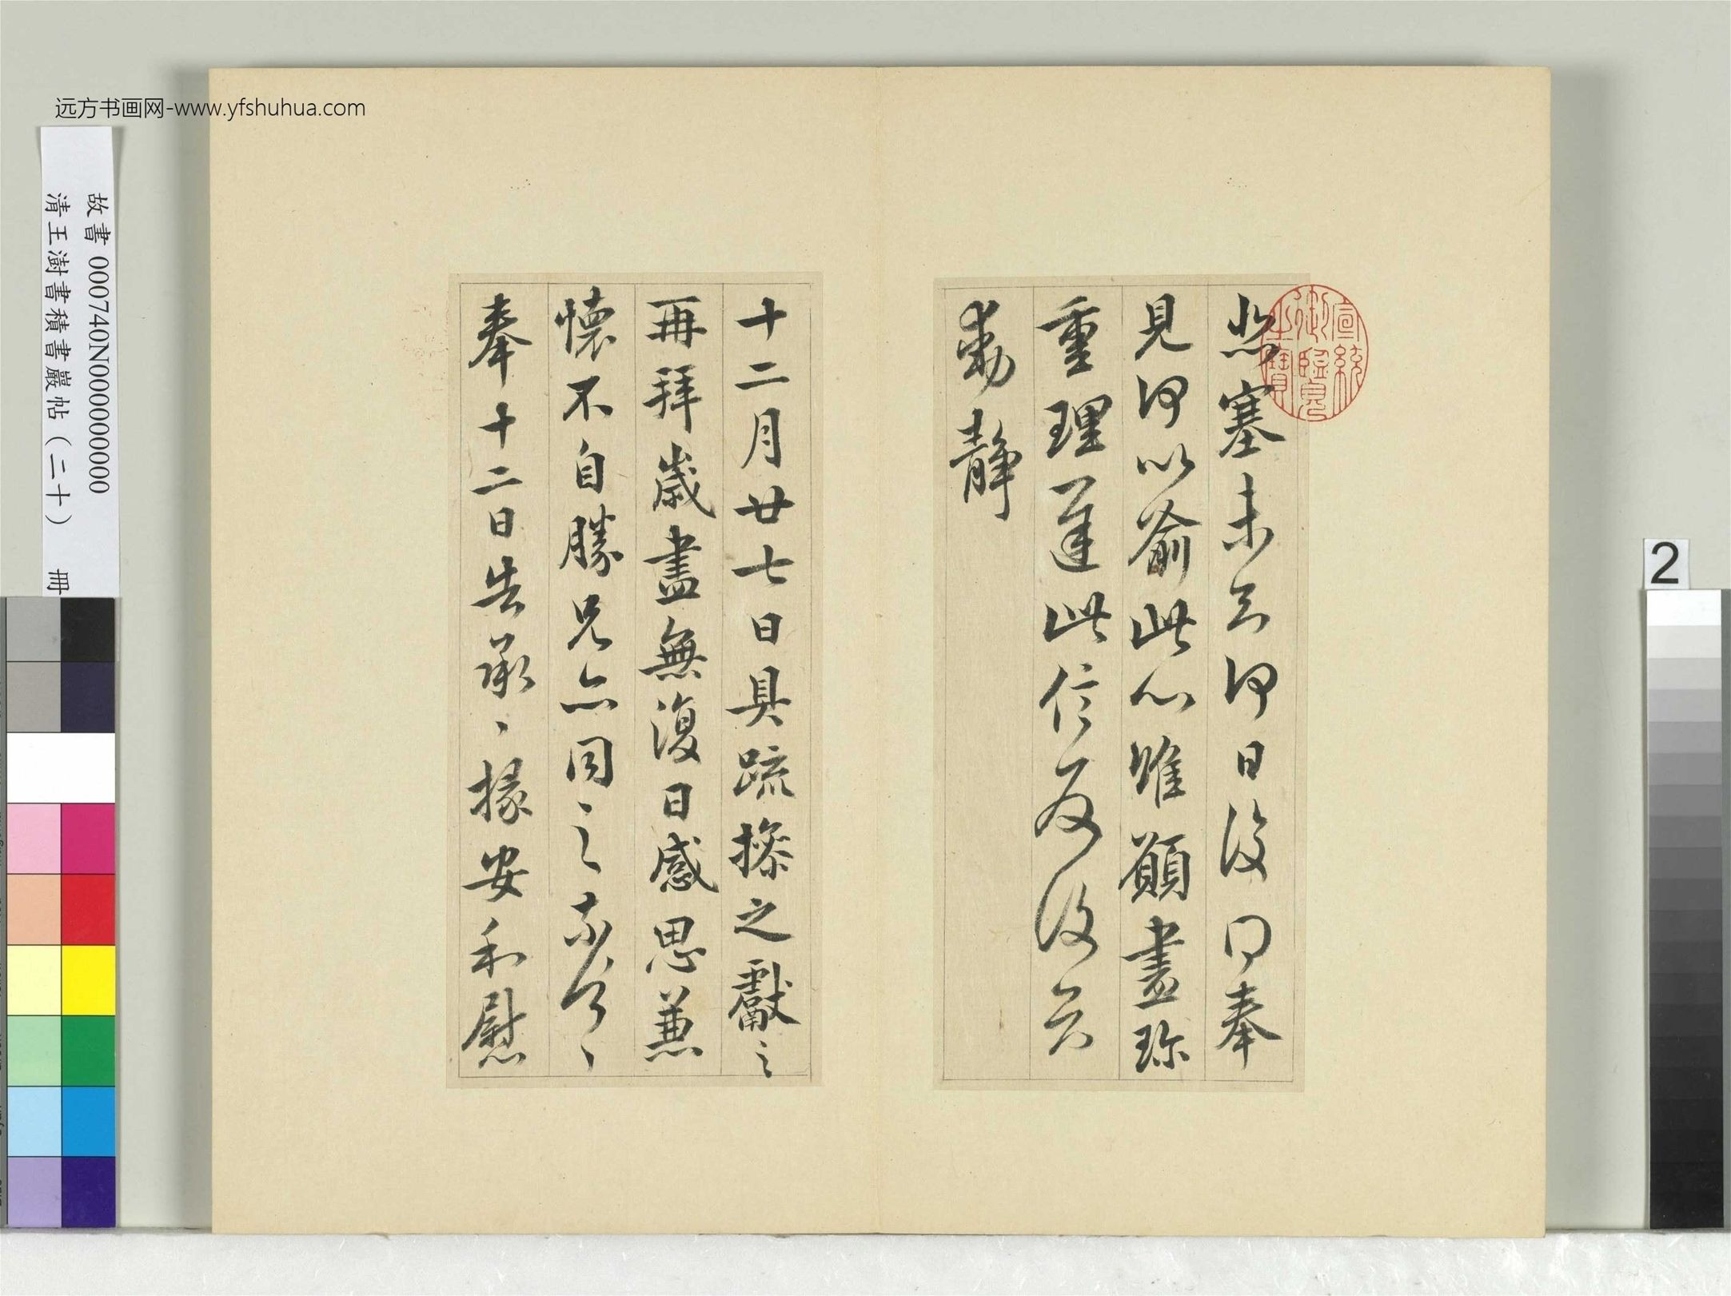 远方书画网-www.yfshuhua.com
故書 000740N000000000
清王澍書積書巖帖（二十） 冊
2
宣統御覽之寶
悲塞未知何日復得奉
見何以喻此心惟願盡珍
重理遲此信反復知
動靜
十二月廿七日具疏操之獻之
再拜歲盡無復日感思兼
懷不自勝兄亦同〻之奈何〻
奉十二日告承〻掾安和慰